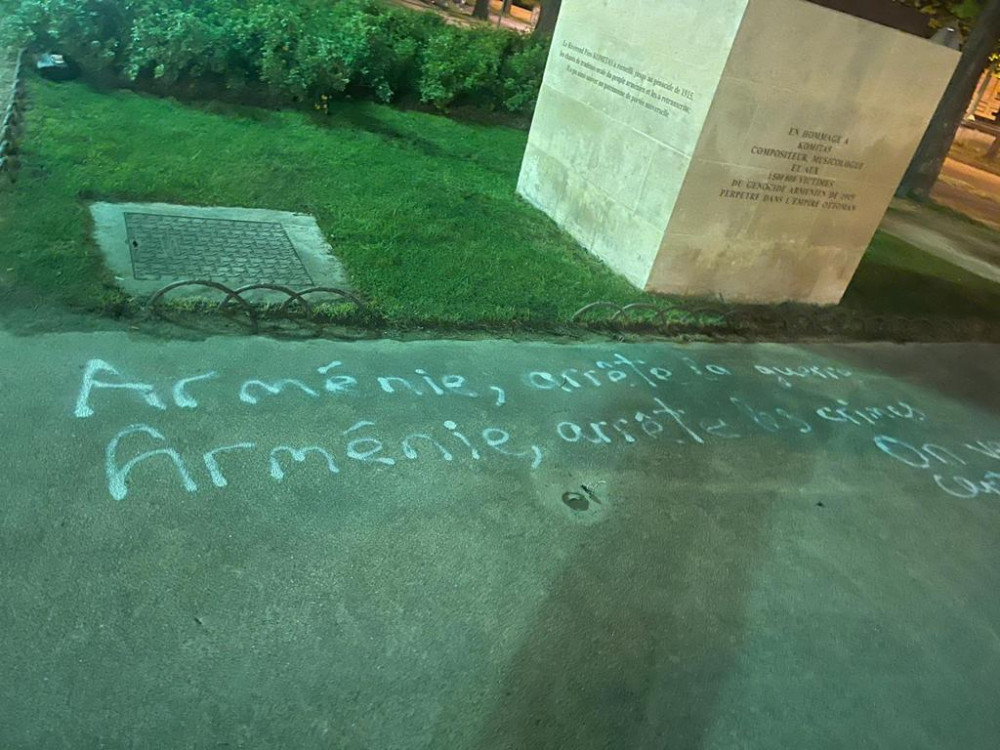 Le Révérend Père KOMITAS a recueilli, jusqu'au génocide de 1915,
les chants de tradition orale du peuple arménien et les a retranscrits.
Il a pu ainsi sauver un patrimoine de portée universelle
EN HOMMAGE A
KOMITAS
COMPOSITEUR, MUSICOLOGUE
ET AUX
1 500 000 VICTIMES
DU GENOCIDE ARMENIEN DE 1915
PERPETRE DANS L'EMPIRE OTTOMAN
Arménie, arrête la guerre
Arménie, arrête les crimes
On